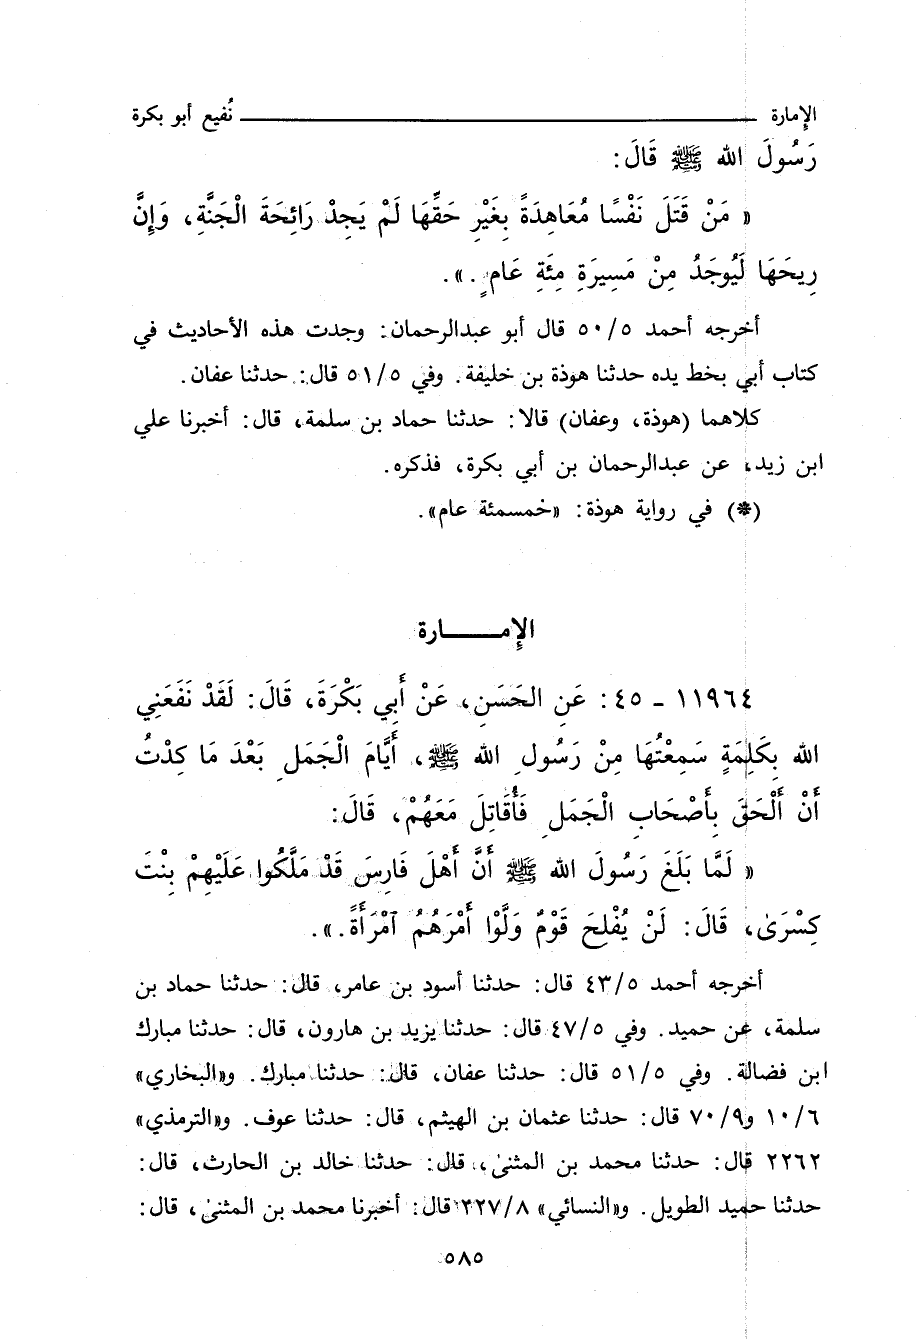 الإمارة ــــــــــــــــ نُفيع أبو بكرة
رَسُولَ الله ﷺ قَالَ:
« مَنْ قَتَلَ نَفْسًا مُعَاهِدَةً بِغَيْرِ حَقِّهَا لَمْ يَجِدْ رَائِحَةَ الْجَنَّةِ، وَإِنَّ
رِيحَهَا لَيُوجَدُ مِنْ مَسِيرَةِ مِئَةِ عَامٍ.».
أخرجه أحمد ٥/٥٠ قال أبو عبدالرحمان: وجدت هذه الأحاديث في
كتاب أبي بخط يده حدثنا هوذة بن خليفة. وفي ٥/٥١ قال: حدثنا عفان.
كلاهما (هوذة، وعفان) قالا: حدثنا حماد بن سلمة، قال: أخبرنا علي
ابن زيد، عن عبدالرحمان بن أبي بكرة، فذكره.
(*) في رواية هوذة: «خمسمئة عام».
الإمـــــارة
١١٩٦٤ - ٤٥: عَنِ الْحَسَنِ، عَنْ أَبِي بَكْرَةَ، قَالَ: لَقَدْ نَفَعَنِي
الله بِكَلِمَةٍ سَمِعْتُهَا مِنْ رَسُولِ الله ﷺ، أَيَّامَ الْجَمَلِ بَعْدَ مَا كِدْتُ
أَنْ أَلْحَقَ بِأَصْحَابِ الْجَمَلِ فَأُقَاتِلَ مَعَهُمْ، قَالَ:
« لَمَّا بَلَغَ رَسُولَ الله ﷺ أَنَّ أَهْلَ فَارِسَ قَدْ مَلَّكُوا عَلَيْهِمْ بِنْتَ
كِسْرَىٰ، قَالَ: لَنْ يُفْلِحَ قَوْمٌ وَلَّوْا أَمْرَهُمُ ٱمْرَأَةً.».
أخرجه أحمد ٥/٤٣ قال: حدثنا أسود بن عامر، قال: حدثنا حماد بن
سلمة، عن حميد. وفي ٥/٤٧ قال: حدثنا يزيد بن هارون، قال: حدثنا مبارك
ابن فضالة. وفي ٥/٥١ قال: حدثنا عفان، قال: حدثنا مبارك. و«البخاري»
٦/١٠ و٩/٧٠ قال: حدثنا عثمان بن الهيثم، قال: حدثنا عوف. و«الترمذي»
٢٢٦٢ قال: حدثنا محمد بن المثنىٰ، قال: حدثنا خالد بن الحارث، قال:
حدثنا حميد الطويل. و«النسائي» ٨/٢٢٧ قال: أخبرنا محمد بن المثنىٰ، قال:
٥٨٥